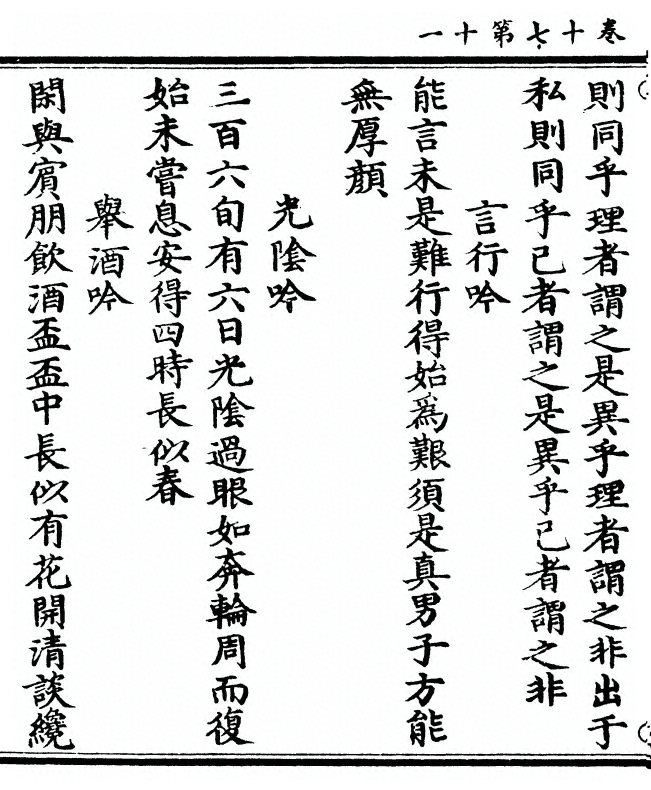 卷十七第十一
則同乎理者謂之是異乎理者謂之非出于
私則同乎已者謂之是異乎已者謂之非
言行吟
能言未是難行得始爲艱須是真男子方能
無厚顏
光陰吟
三百六旬有六日光陰過眼如奔輪周而復
始未嘗息安得四時長似春
舉酒吟
閑與賓朋飲酒盃盃中長似有花開清談纔